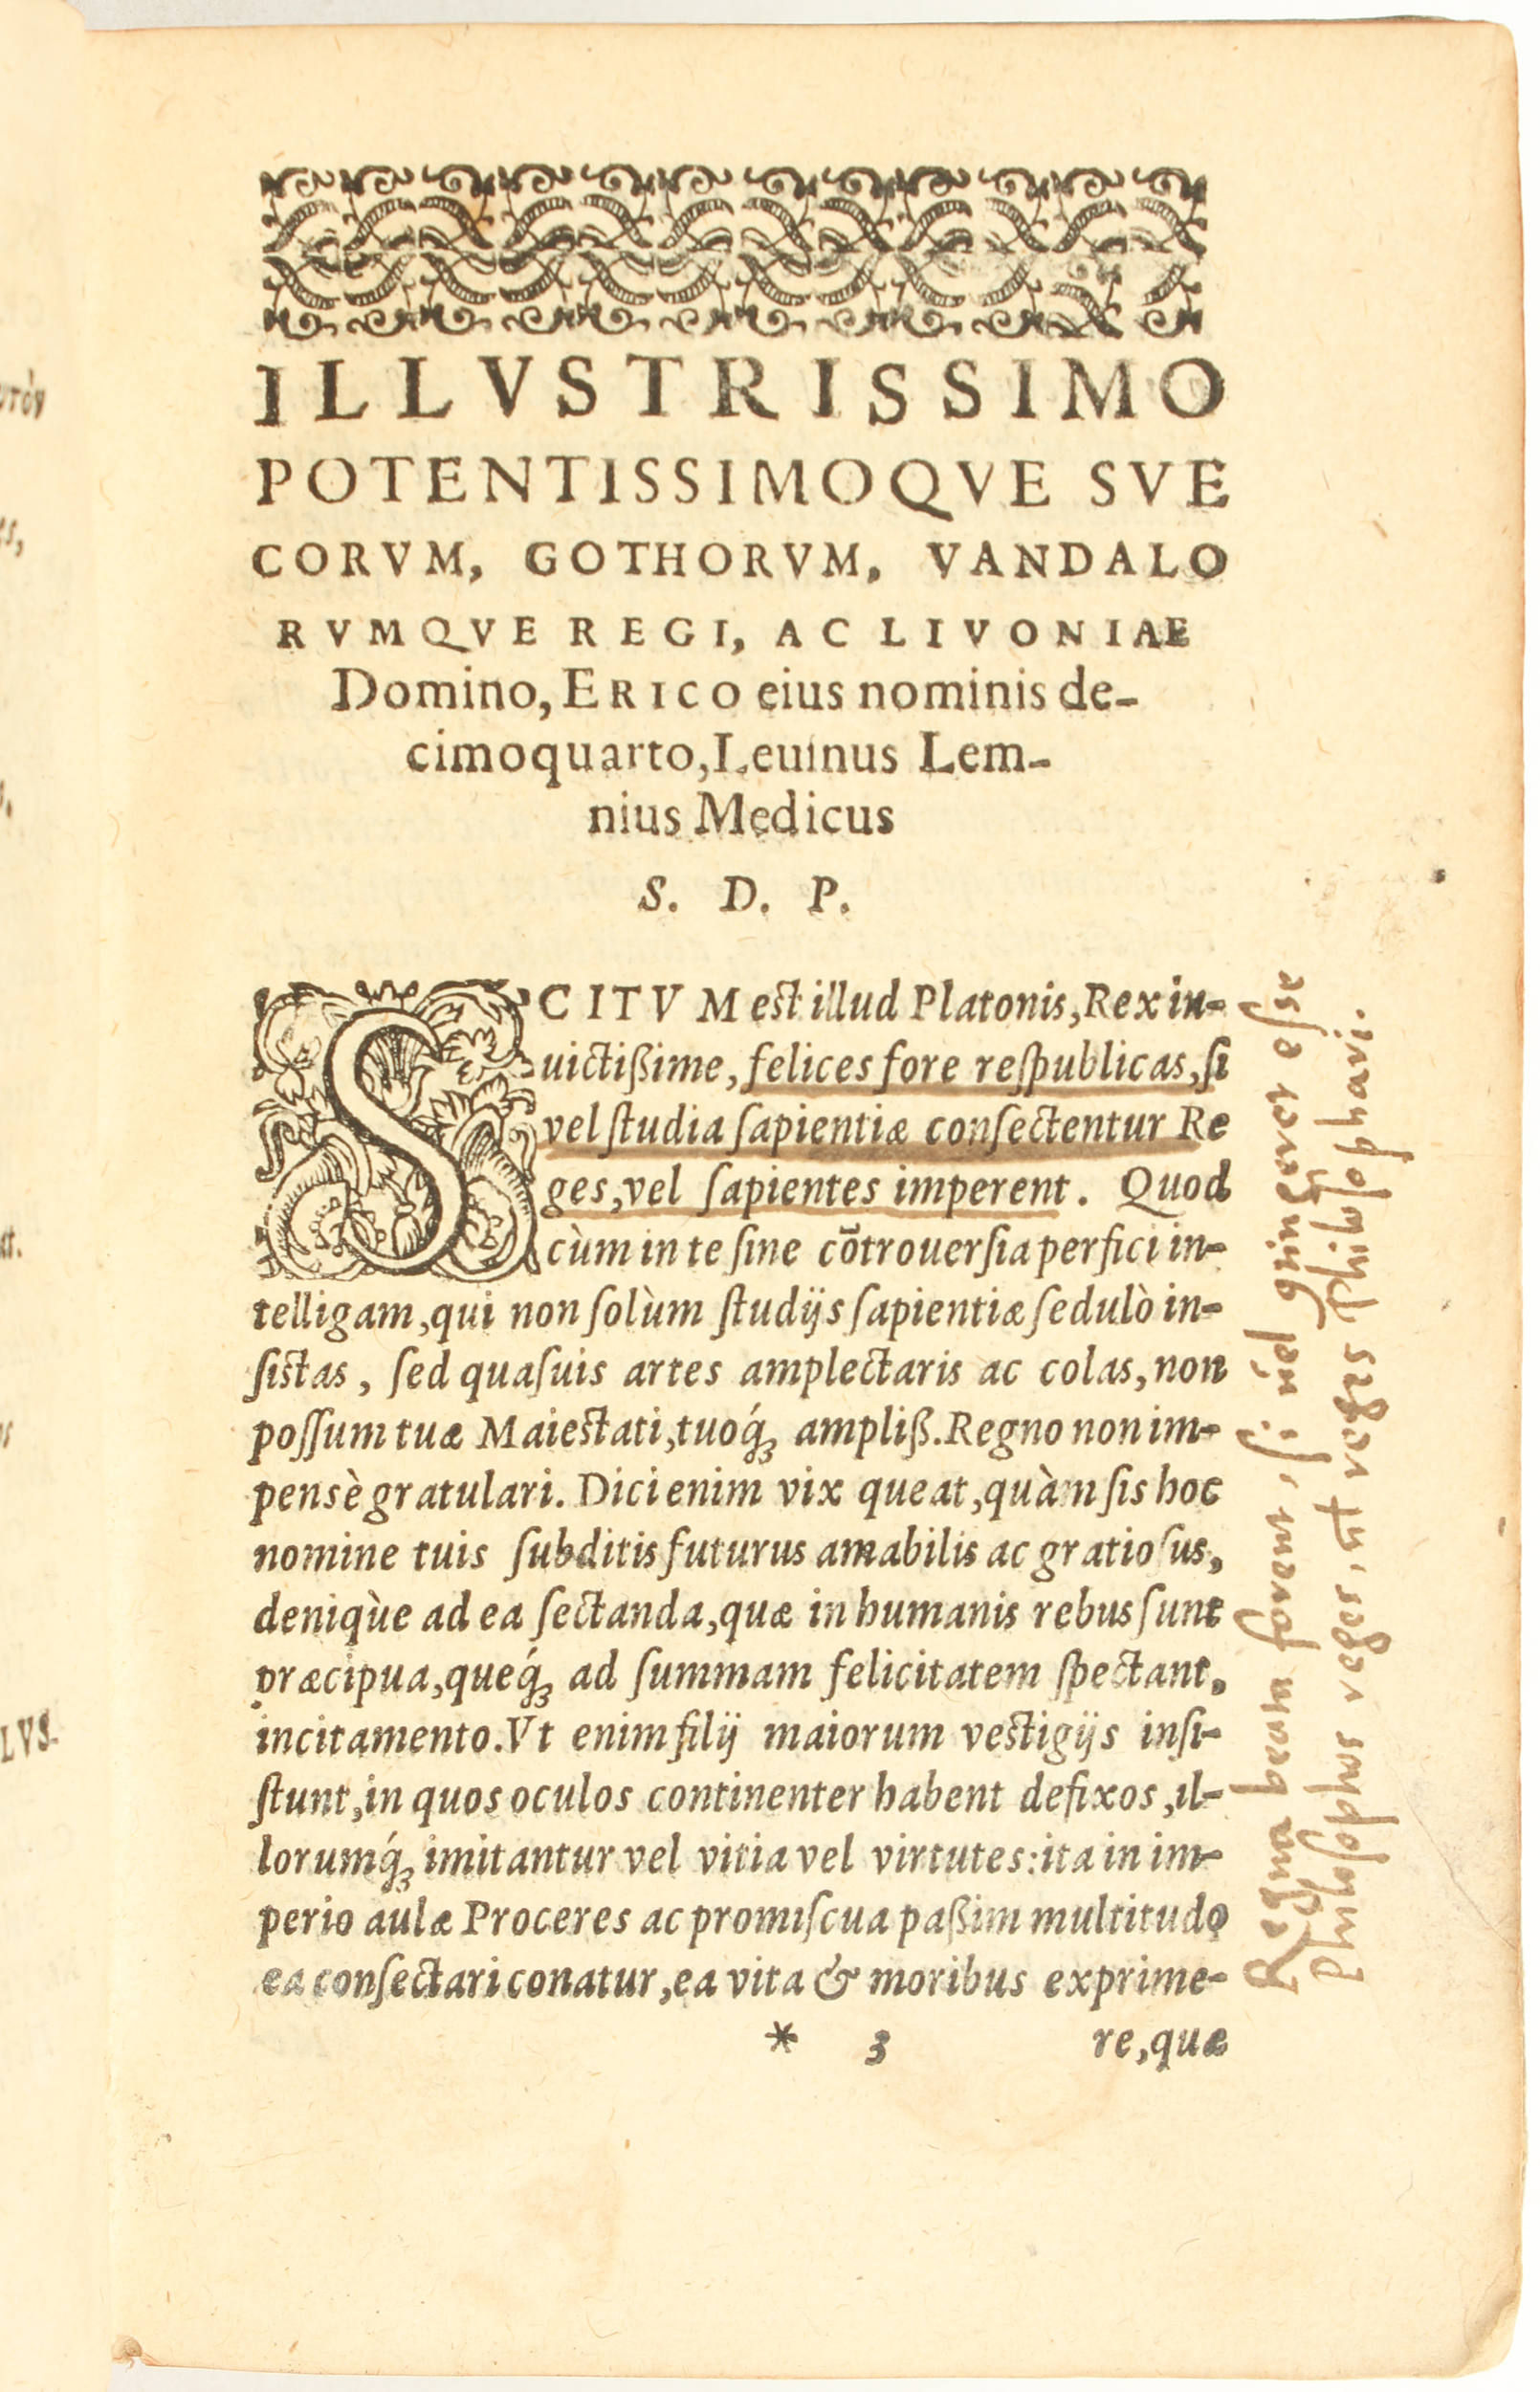 ILLVSTRISSIMO
POTENTISSIMOQVE SVE
CORVM, GOTHORVM, VANDALO
RVMQVE REGI, AC LIVONIAE
Domino, ERICO eius nominis de-
cimoquarto, Leuinus Lem-
nius Medicus
S. D. P.
SCITVM est illud Platonis, Rex in-
uictißime, felices fore respublicas, si
vel studia sapientiæ consectentur Re
ges, vel sapientes imperent. Quod
cùm in te sine cōtrouersia perfici in-
telligam, qui non solùm studijs sapientiæ sedulò in-
sistas, sed quasuis artes amplectaris ac colas, non
possum tuæ Maiestati, tuoq́; ampliß. Regno non im-
pensè gratulari. Dici enim vix queat, quàm sis hoc
nomine tuis subditis futurus amabilis ac gratiosus,
deniqùe ad ea sectanda, quæ in humanis rebus sunt
præcipua, queq́; ad summam felicitatem spectant,
incitamento. Vt enim filij maiorum vestigijs insi-
stunt, in quos oculos continenter habent defixos, il-
lorumq́; imitantur vel vitia vel virtutes: ita in im-
perio aulæ Proceres ac promiscua paßim multitudo
ea consectari conatur, ea vita & moribus exprime-
* 3 re, quæ
Regna si, uel esse
philosophus reges, ut reges Philosophari.
LVS.